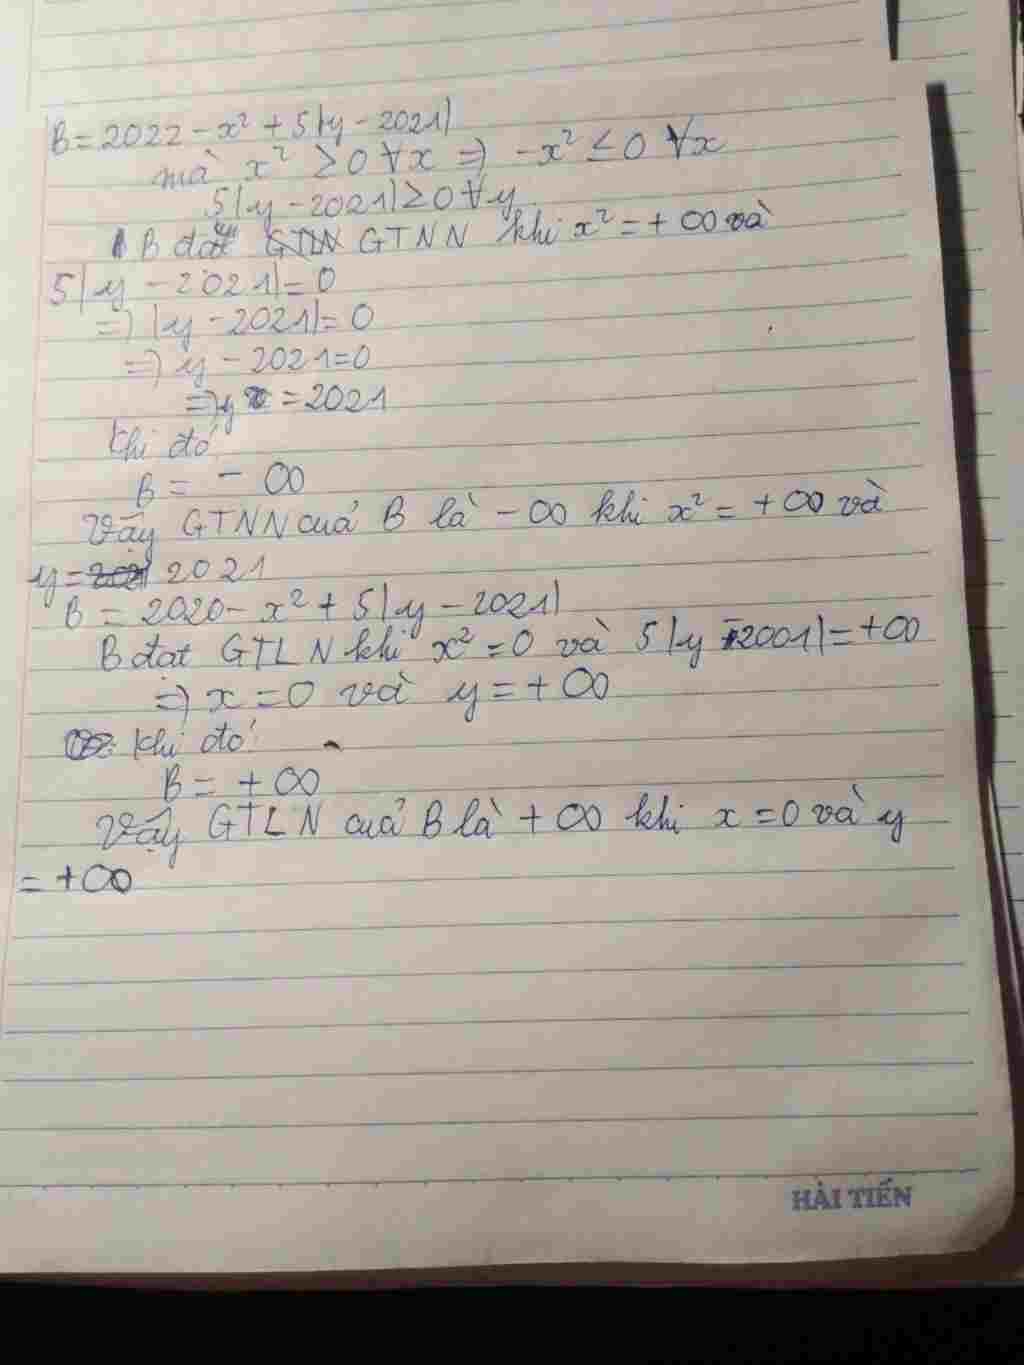 B = 2022 - x² + 5|y - 2021|
mà x² ≥ 0 ∀x ⇒ -x² ≤ 0 ∀x
5|y - 2021| ≥ 0 ∀y
B đạt GTNN khi x² = +∞ và
5|y - 2021| = 0
⇒ |y - 2021| = 0
⇒ y - 2021 = 0
⇒ y = 2021
Khi đó
B = -∞
Vậy GTNN cuả B là -∞ khi x² = +∞ và
y = 2021
B = 2020 - x² + 5|y - 2021|
B đạt GTLN khi x² = 0 và 5|y - 2001| = +∞
⇒ x = 0 và y = +∞
Khi đó
B = +∞
Vậy GTLN cuả B là +∞ khi x = 0 và y
= +∞
HẢI TIẾN